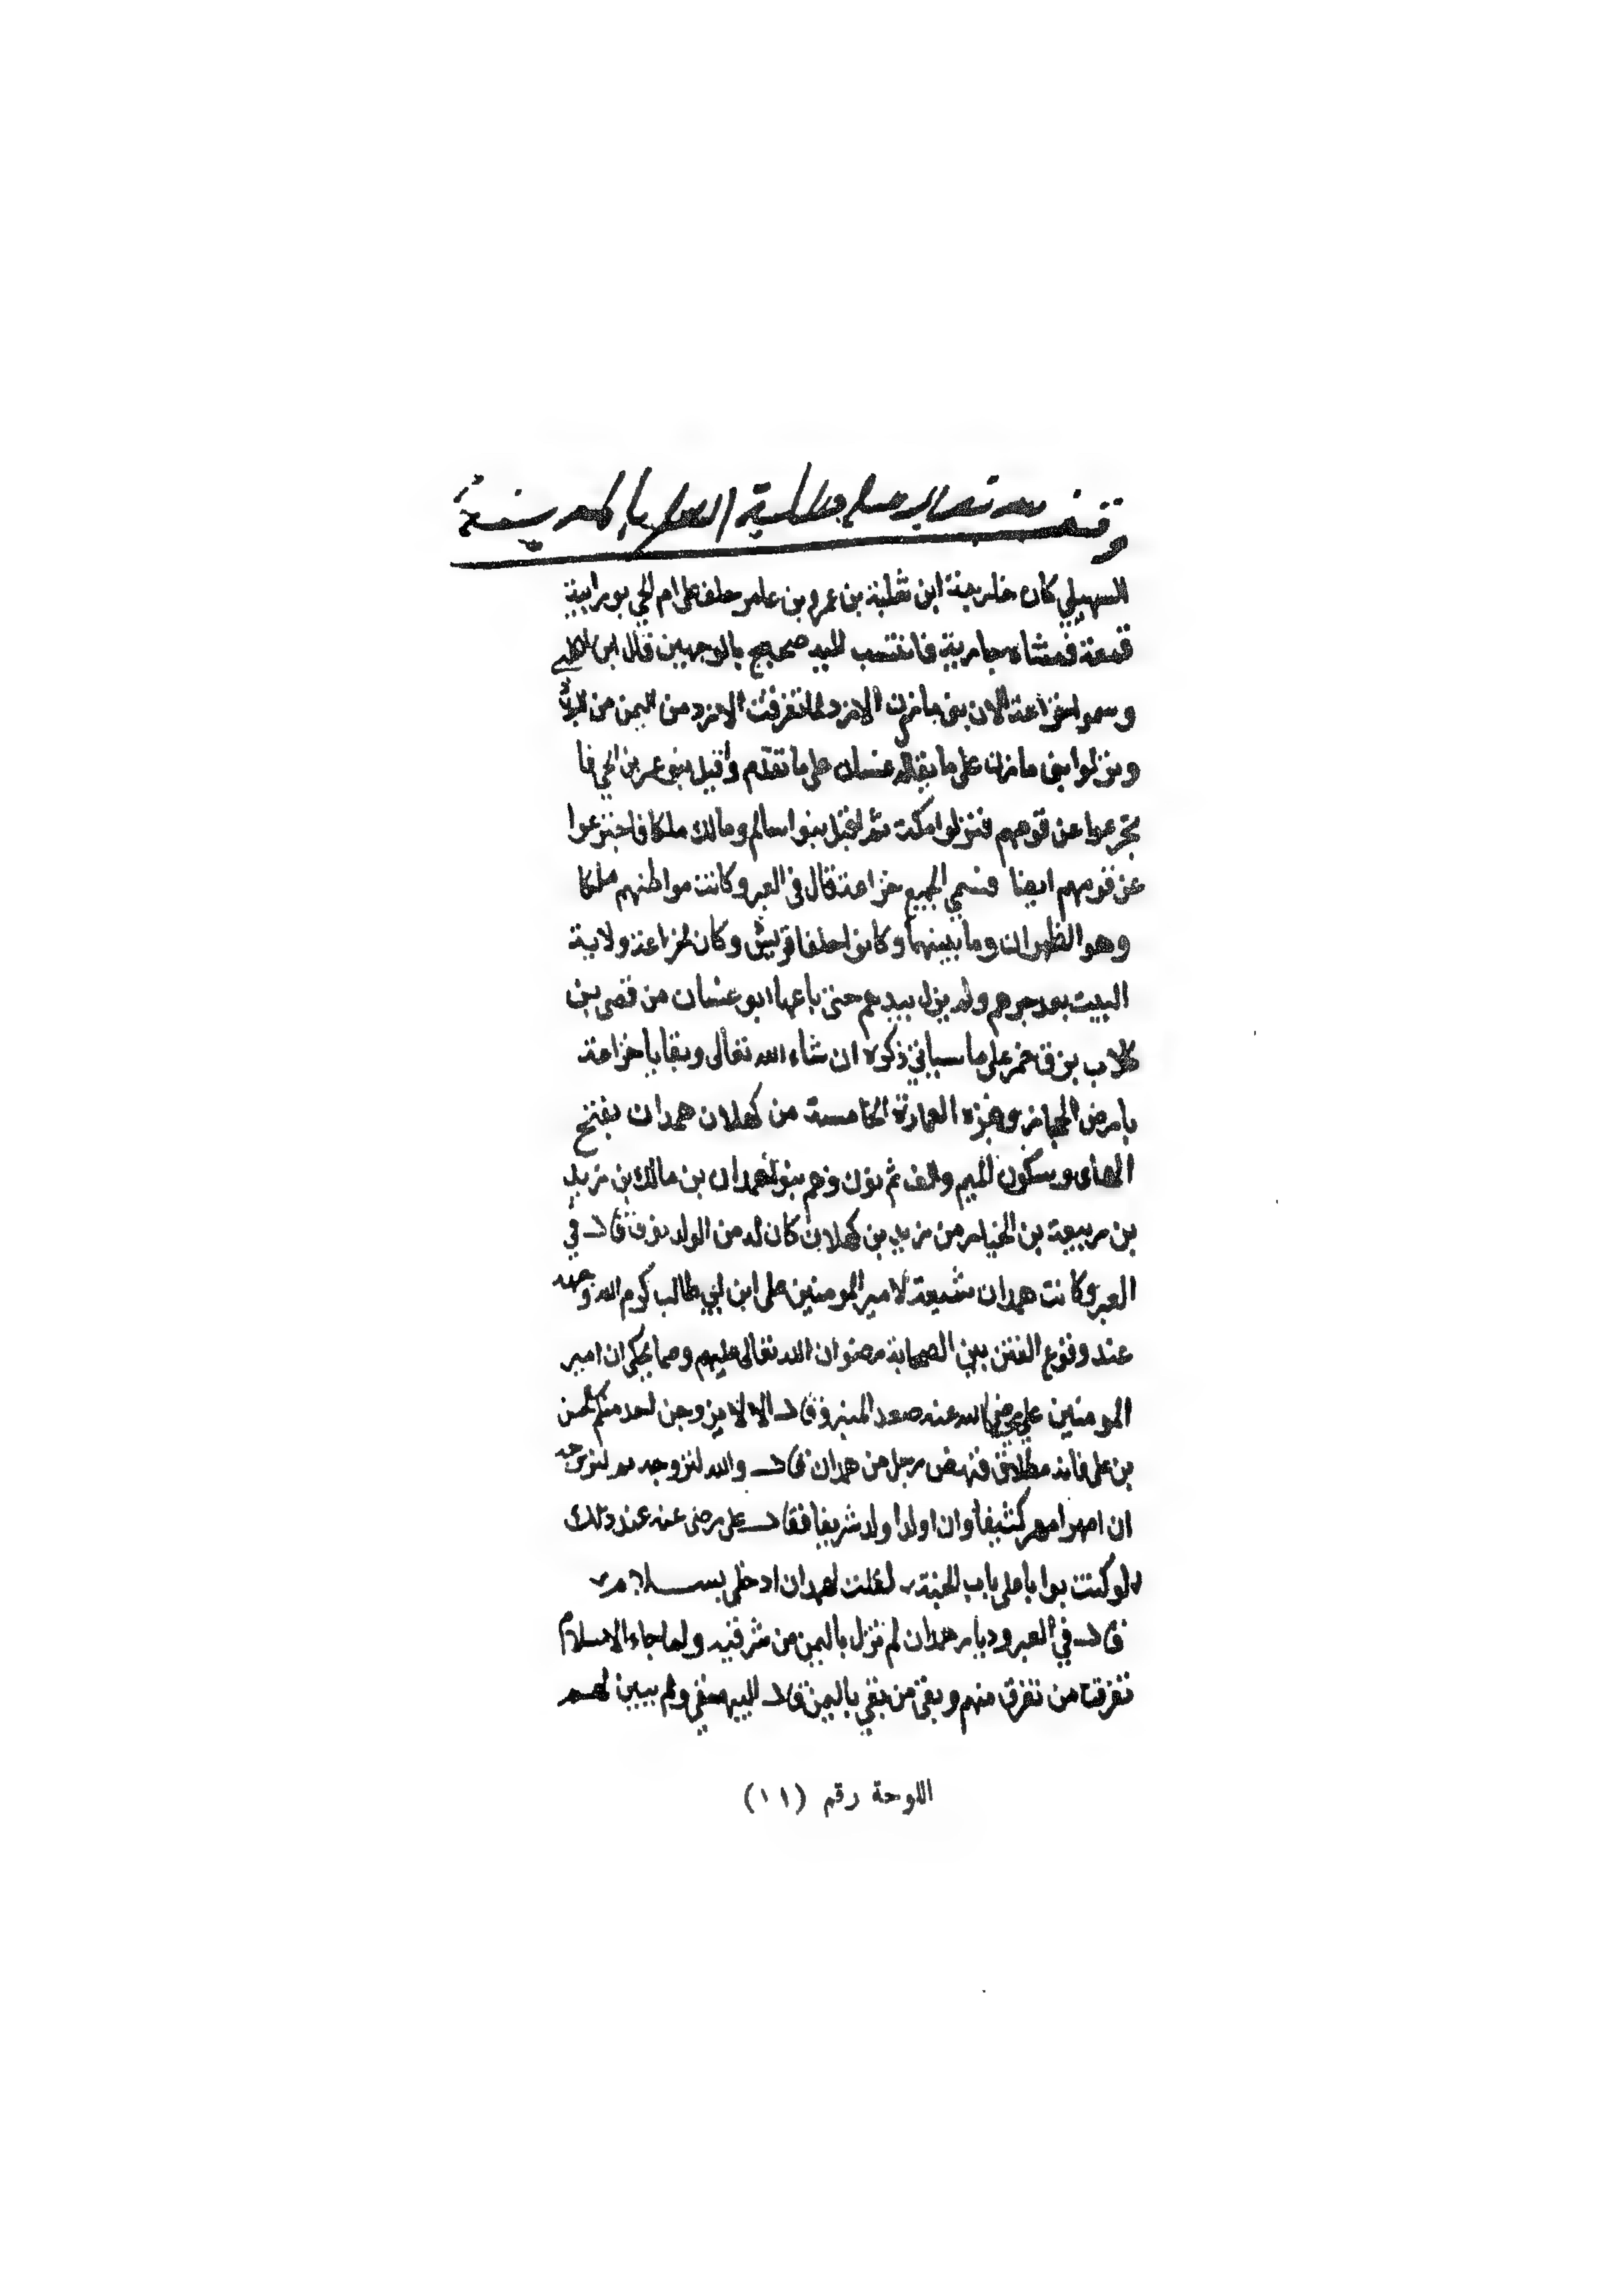 وقف لله تعالى على طلبة العلم
السهيلي كان حارجة ابن ثعلبة بن عمرو بن عامر خلف على ام لحي بعد ابيه
قمعة فمشاه حارثة فانتسب اليه صحيح بالوجهين قال ابن الكلبي
وسموا خزاعة لان بني مازن الازد لما تفرقت الازد من اليمن من البلاد
ونزلوا بني مازن على ما يقال غسان على ما تقدم واقبل بنو عمرو بن لحي فا
نخزعوا عن قومهم فنزلوا مكة ثم اقبل بنوا سالم ومالك ملكا فانخزعوا
عن قومهم ايضا فسمي الجميع خزاعة قال في العبر وكانت مواطنهم ملكا
وهو الظهران وما بينهما وكانوا حلفا قريش وكان لخزاعة ولاية
البيت بعد جرهم ولم يزل بيدهم حتى باعها ابو غسان من قصي بن
كلاب بزق خمر على ما سياتي ذكره ان شاء الله تعالى وبقايا خزاعة
بارض الحجاز وغيره العمارة الخامسة من كهلان همدان بفتح
الهاى وسكون الميم والف ثم نون وهم بنو همدان بن مالك بن زيد
بن ربيعة بن الخيار من زيد بن كهلان كان له من الولد نوف قال في
العبر وكانت همدان شيعة لامير المومنين على ابن ابي طالب كرم الله وجهه
عند وقوع الفتن بين الصحابة رضوان الله تعالى عليهم ومما يحكى ان امير
المومنين علي رضي الله عنه صعد المنبر وقال الا لا يزوجن احد منكم الحسن
بن على فانه مطلاق فنهض رجل من همدان فقال والله لنزوجه ثم لنزوجه
ان امهر امهر كثيفا وان اولد اولد شريفا فقال على رضى عنه عند ذلك
لو كنت بوابا على باب الجنة لقلت لهمدان ادخلى بسلام
قال في العبر وديار همدان لم تزل باليمن من شرقيه ولما جاء الاسلام
تفرقت من تفرق منهم وبقى من بقي باليمن قال البيهقي ولم يبين لهم
اللوحة رقم (١١)